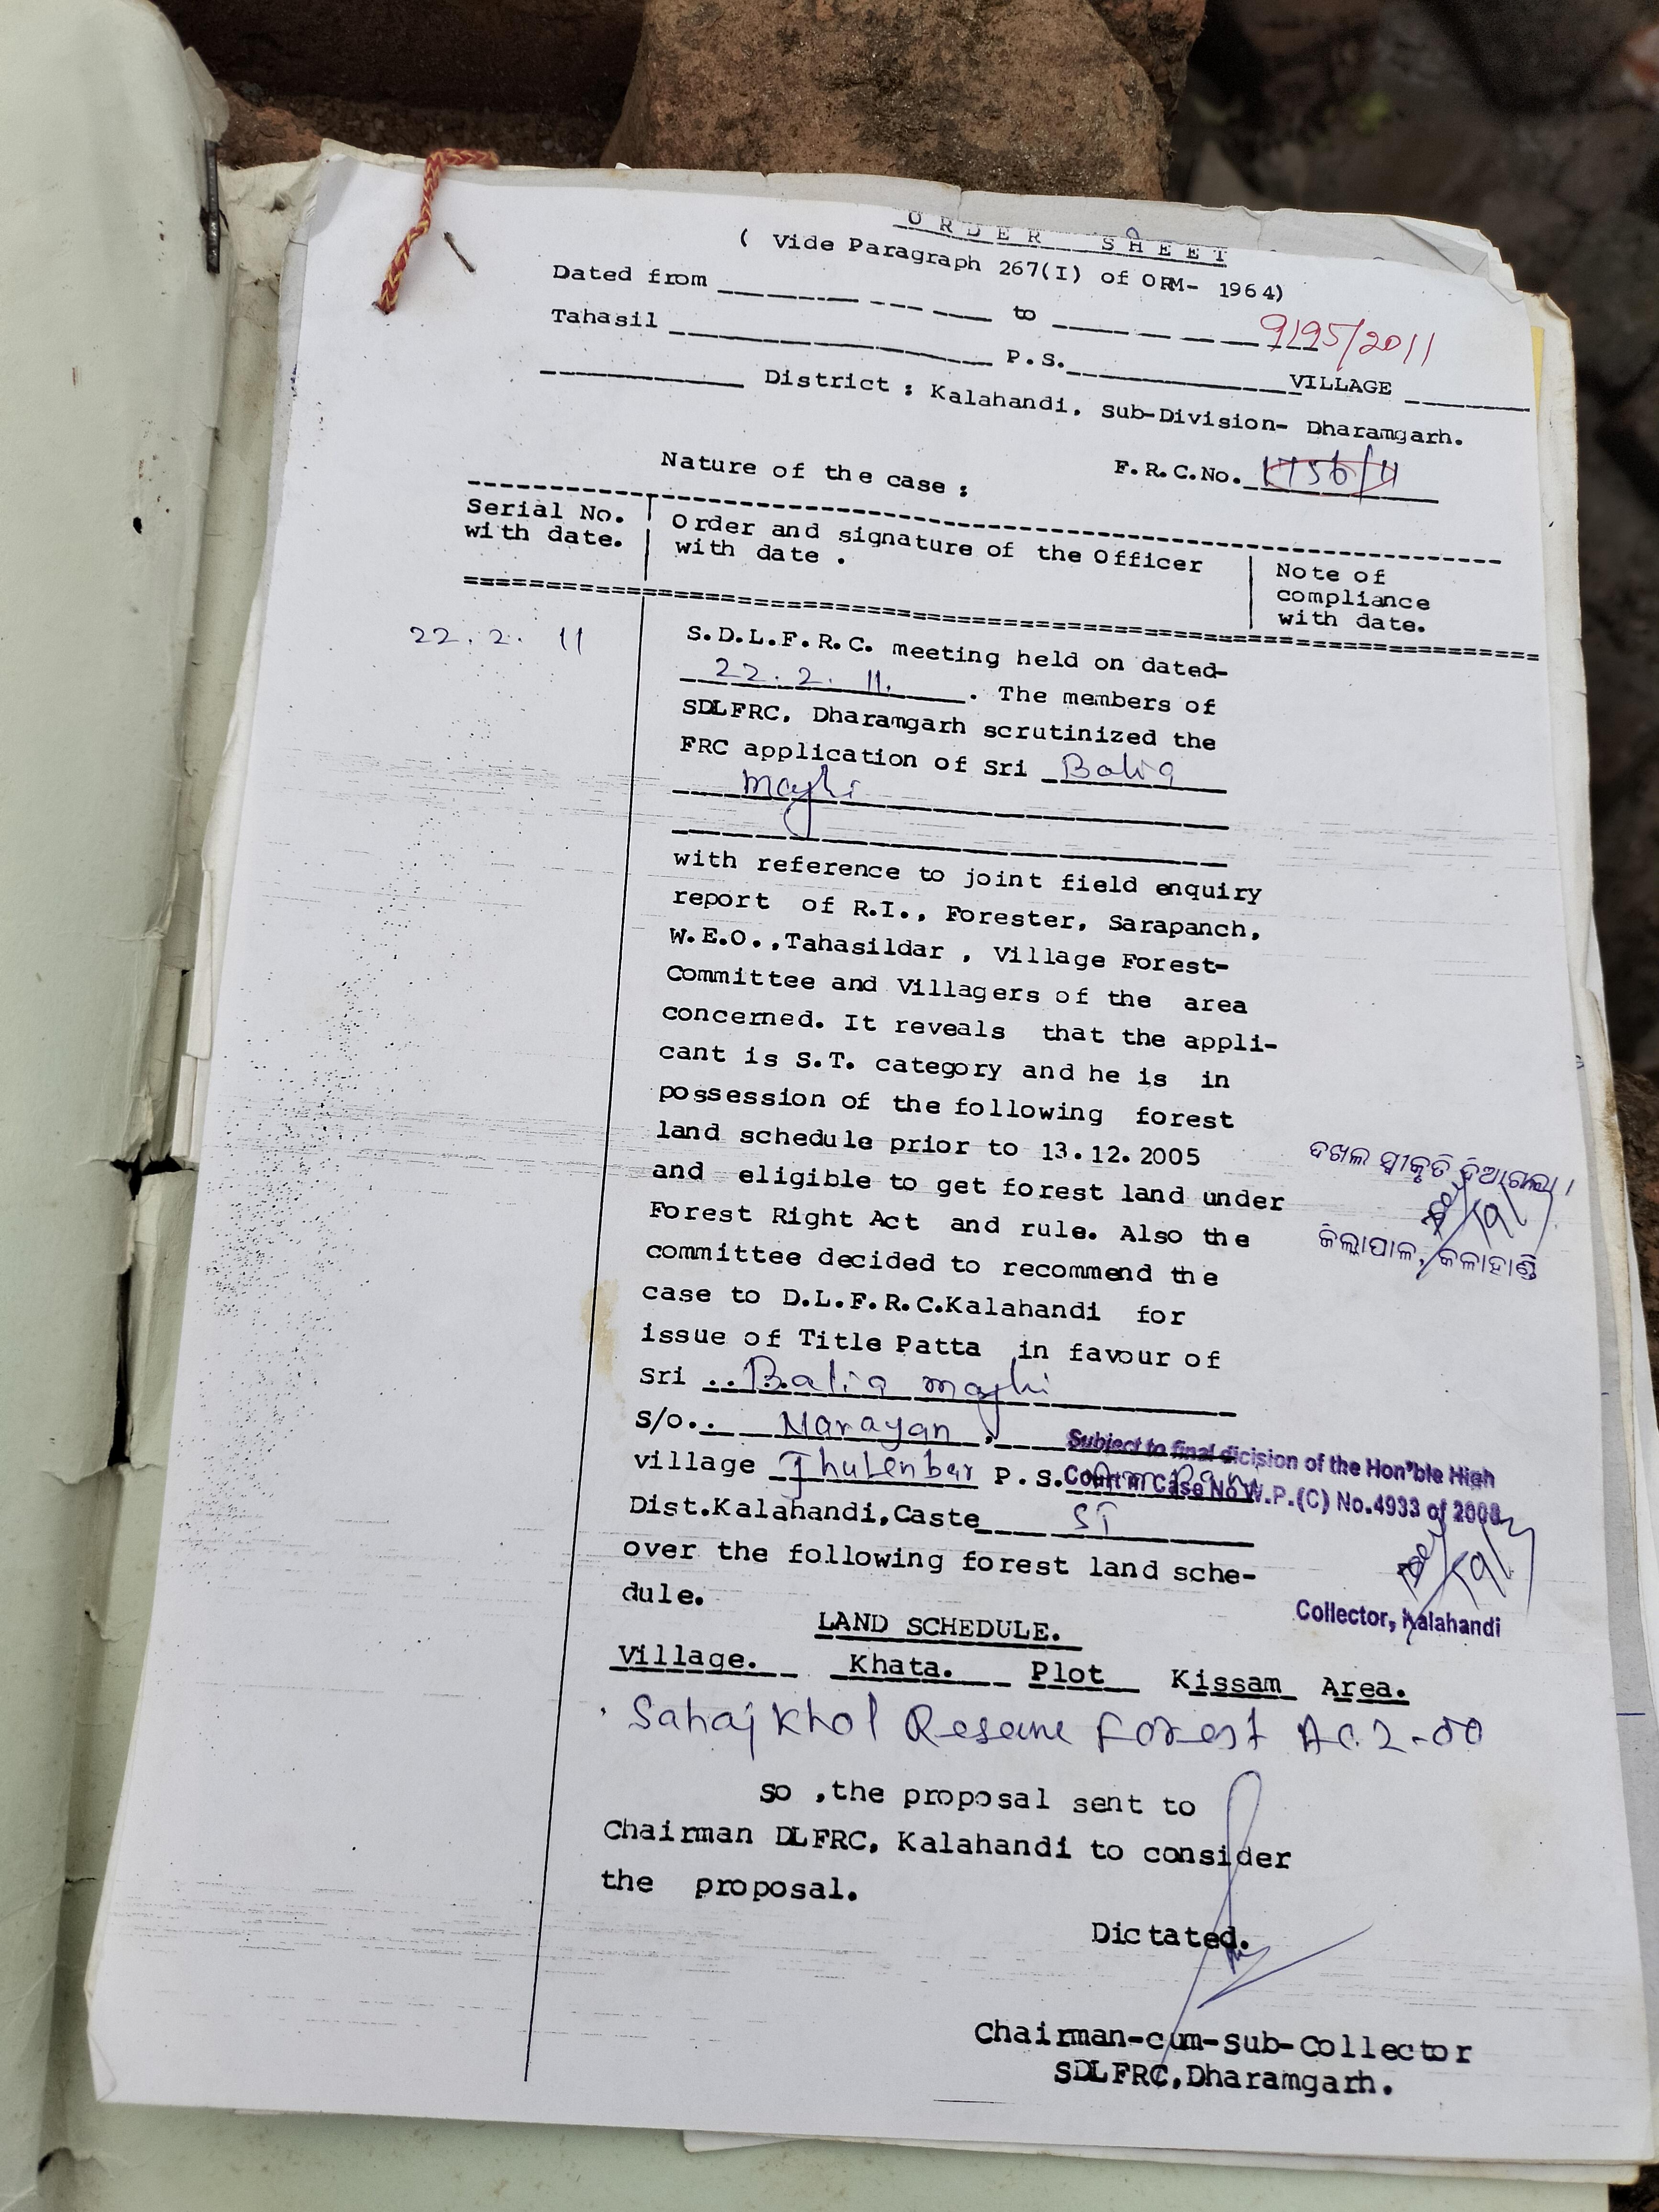 ORDER SHEET
( Vide Paragraph 267(I) of ORM- 1964)
Dated from to
9195/2011
Tahasil P.S. VILLAGE
District : Kalahandi, Sub-Division- Dharamgarh.
Nature of the case : F.R.C.No. 1756/11
Serial No. with date.
Order and signature of the Officer with date .
Note of compliance with date.
22.2.11
S.D.L.F.R.C. meeting held on dated-
22.2.11. . The members of
SDLFRC, Dharamgarh scrutinized the
FRC application of Sri Balia
majhi
with reference to joint field enquiry
report of R.I., Forester, Sarapanch,
W.E.O.,Tahasildar , Village Forest-
Committee and Villagers of the area
concerned. It reveals that the appli-
cant is S.T. category and he is in
possession of the following forest
land schedule prior to 13.12.2005
and eligible to get forest land under
Forest Right Act and rule. Also the
committee decided to recommend the
case to D.L.F.R.C.Kalahandi for
issue of Title Patta in favour of
Sri .. Balia majhi
S/o.. Narayan,
village P.S.
Dist.Kalahandi,Caste ST
over the following forest land sche-
dule.
ଦଖଲ ସ୍ୱୀକୃତି ଦିଆଗଲା ।
ଜିଲ୍ଲାପାଳ, କଳାହାଣ୍ଡି
Subject to final dicision of the Hon'ble High
Court in Case No W.P.(C) No.4933 of 2008
Collector, Kalahandi
LAND SCHEDULE.
Village. Khata. Plot Kissam Area.
Sahajkhol Reserve Forest AC.2-00
So ,the proposal sent to
Chairman DLFRC, Kalahandi to consider
the proposal.
Dictated.
Chairman-cum-Sub-Collector
SDLFRC,Dharamgarh.